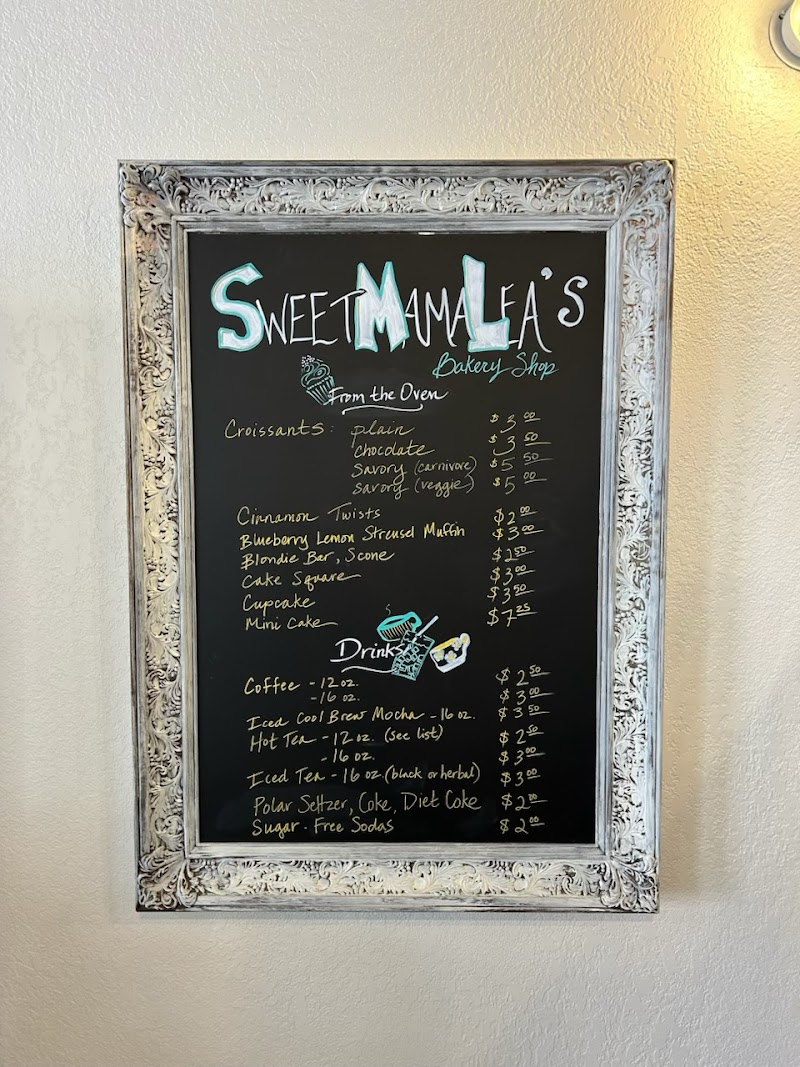 SWEETMAMALEA'S
Bakery Shop
From the Oven
Croissants: plain $3.00
chocolate $3.50
Savory (carnivore) $5.50
savory (veggie) $5.00
Cinnamon Twists $2.00
Blueberry Lemon Streusel Muffin $3.00
Blondie Bar, Scone $2.50
Cake Square $3.00
Cupcake $3.50
Mini Cake $7.25
Drinks
Coffee - 12 oz. $2.50
- 16 oz. $3.00
Iced Cool Brew Mocha - 16 oz. $3.50
Hot Tea - 12 oz. (see list) $2.50
- 16 oz. $3.00
Iced Tea - 16 oz (black or herbal) $3.00
Polar Seltzer, Coke, Diet Coke $2.00
Sugar-Free Sodas $2.00